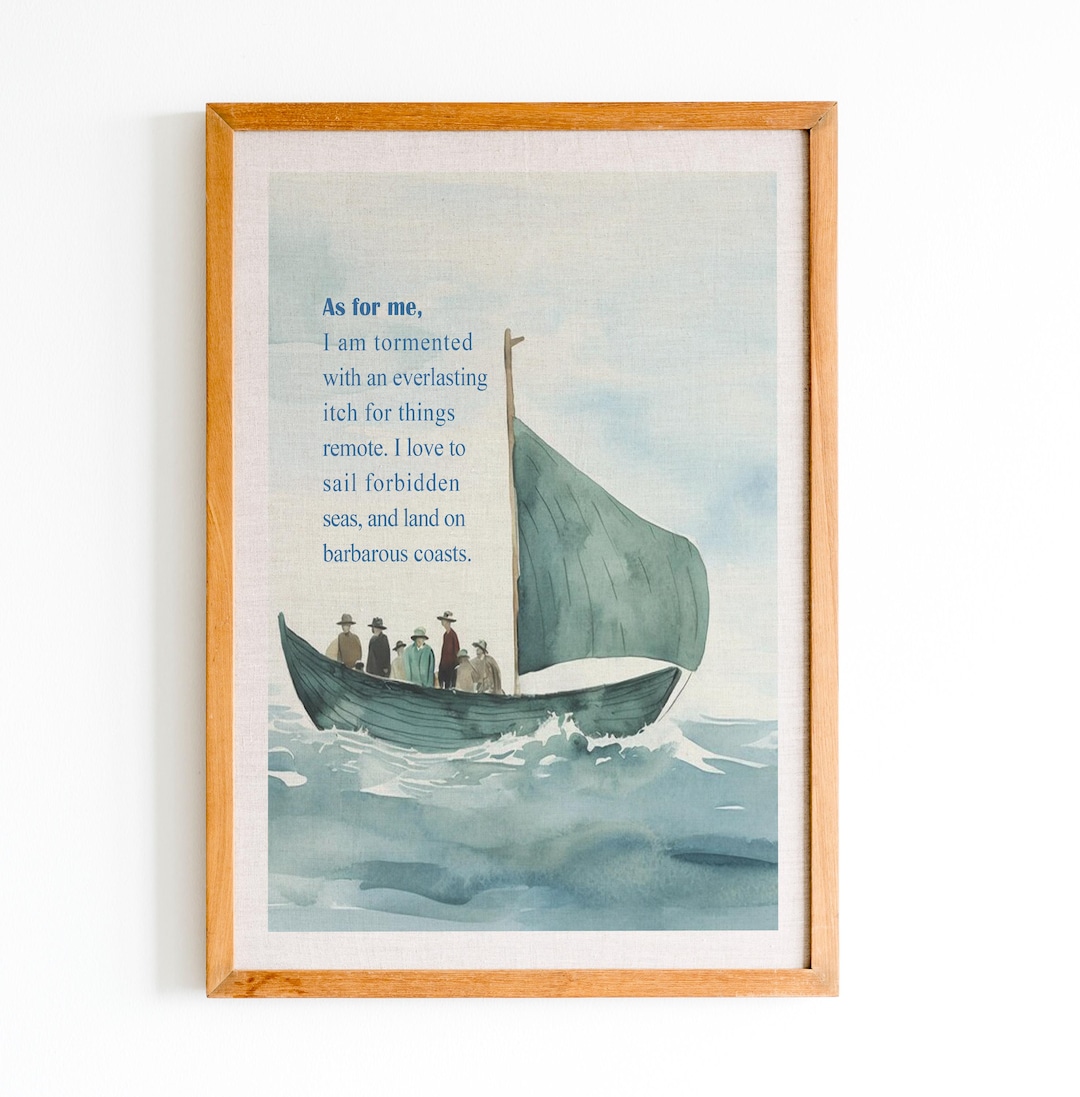 As for me,
I am tormented
with an everlasting
itch for things
remote. I love to
sail forbidden
seas, and land on
barbarous coasts.